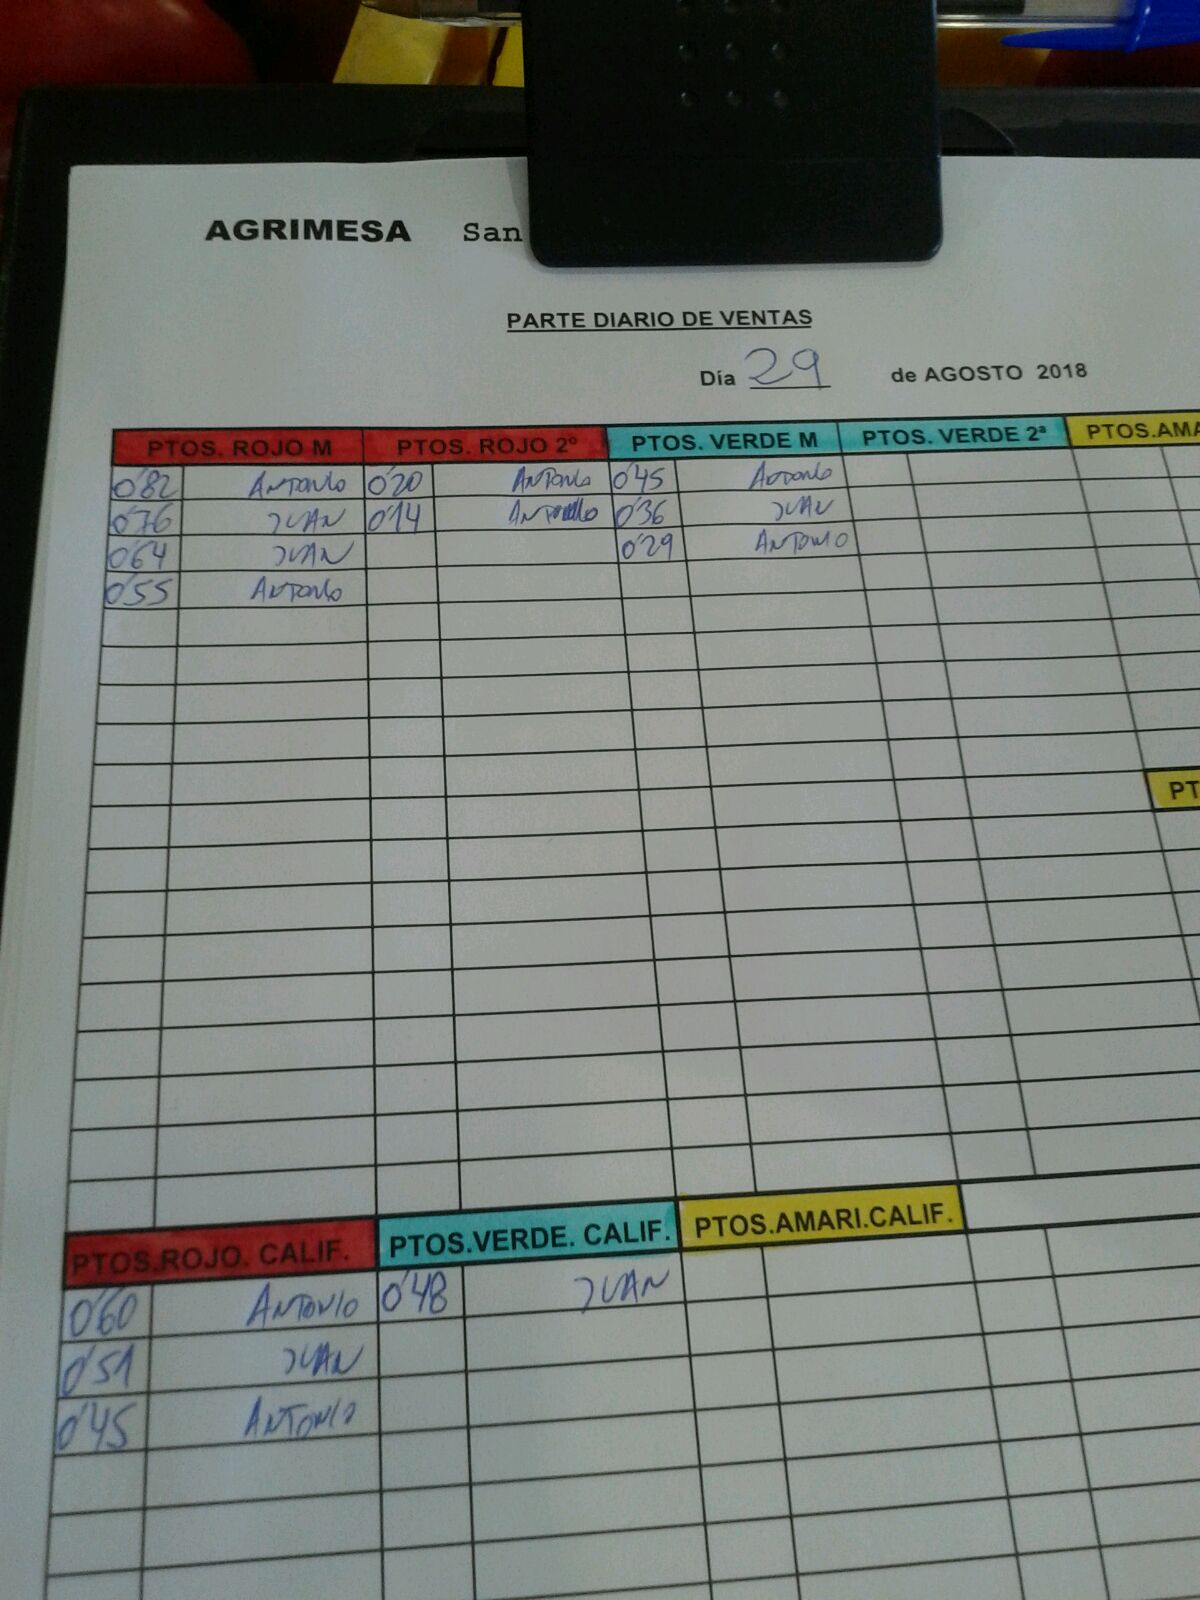 AGRIMESA San
PARTE DIARIO DE VENTAS
Día 29 de AGOSTO 2018
PTOS. ROJO M PTOS. ROJO 2º PTOS. VERDE M PTOS. VERDE 2ª PTOS.AMA
0'82 ANTONIO 0'20 ANTONIO 0'45 ANTONIO
0'76 JUAN 0'14 ANTONIO 0'36 JUAN
0'64 JUAN 0'29 ANTONIO
0'55 ANTONIO
PT
PTOS.ROJO. CALIF. PTOS.VERDE. CALIF. PTOS.AMARI.CALIF.
0'60 ANTONIO 0'48 JUAN
0'51 JUAN
0'45 ANTONIO